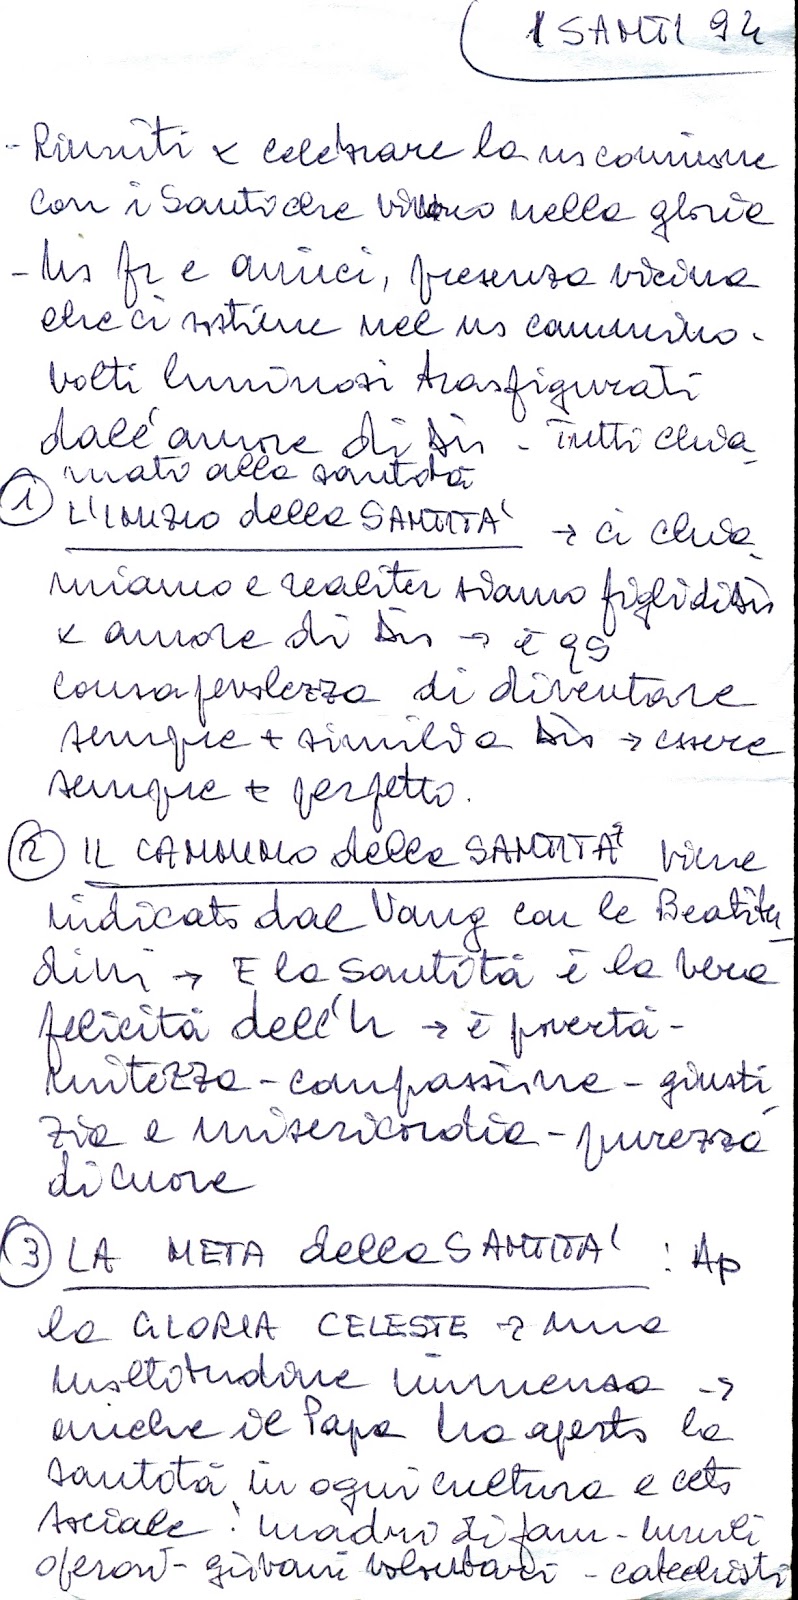 1 SANTI 94
- Riuniti x celebrare la ns comunione
con i Santi che vivono nella gloria
- Ns fr e amici, presenza vicina
che ci sostiene nel ns cammino -
volti luminosi trasfigurati
dall'amore di Dio - Tutti chia
mati alla santità
① L'INIZIO della SANTITA' → ci chia
miamo e realiter siamo figli di Dio
x amore di Dio → è qs
consapevolezza di diventare
sempre + simili a Dio → essere
sempre + perfetto.
② IL CAMMINO della SANTITA' viene
indicato dal Vang con le Beatitu
dini → E la Santità è la vera
felicità dell'h → è povertà -
mitezza - compassione - giusti
zia e misericordia - purezza
di cuore
③ LA META della SANTITA' : Ap
la GLORIA CELESTE → una
moltitudine immensa →
anche il Papa ha aperto la
santità in ogni cultura e ceto
sociale : madri di fam - umili
operai - giovani volontari - catechisti